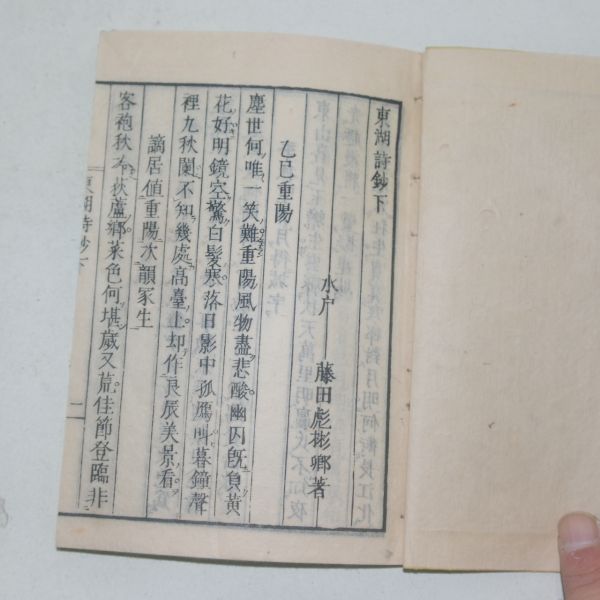 東湖詩鈔下
水戶 藤田彪彬卿著
乙巳重陽
塵世何唯一笑難重陽風物盡悲酸幽囚既負黃
花好明鏡空驚白髮寒落日影中孤鴈叫暮鐘聲
裡九秋闌不知幾處高臺上却作良辰美景看
謫居値重陽次韻家生
客袍秋 荻蘆鄉菜色何堪歲又荒佳節登臨非
東湖詩鈔下
一